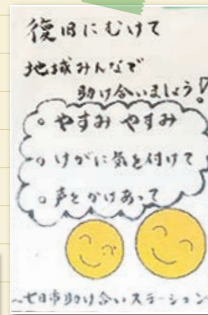 復旧にむけて
地域みんなで
助け合いましょう!
○ やすみ やすみ
○ けがに気を付けて
○ 声をかけあって
~七日市助け合いステーション~